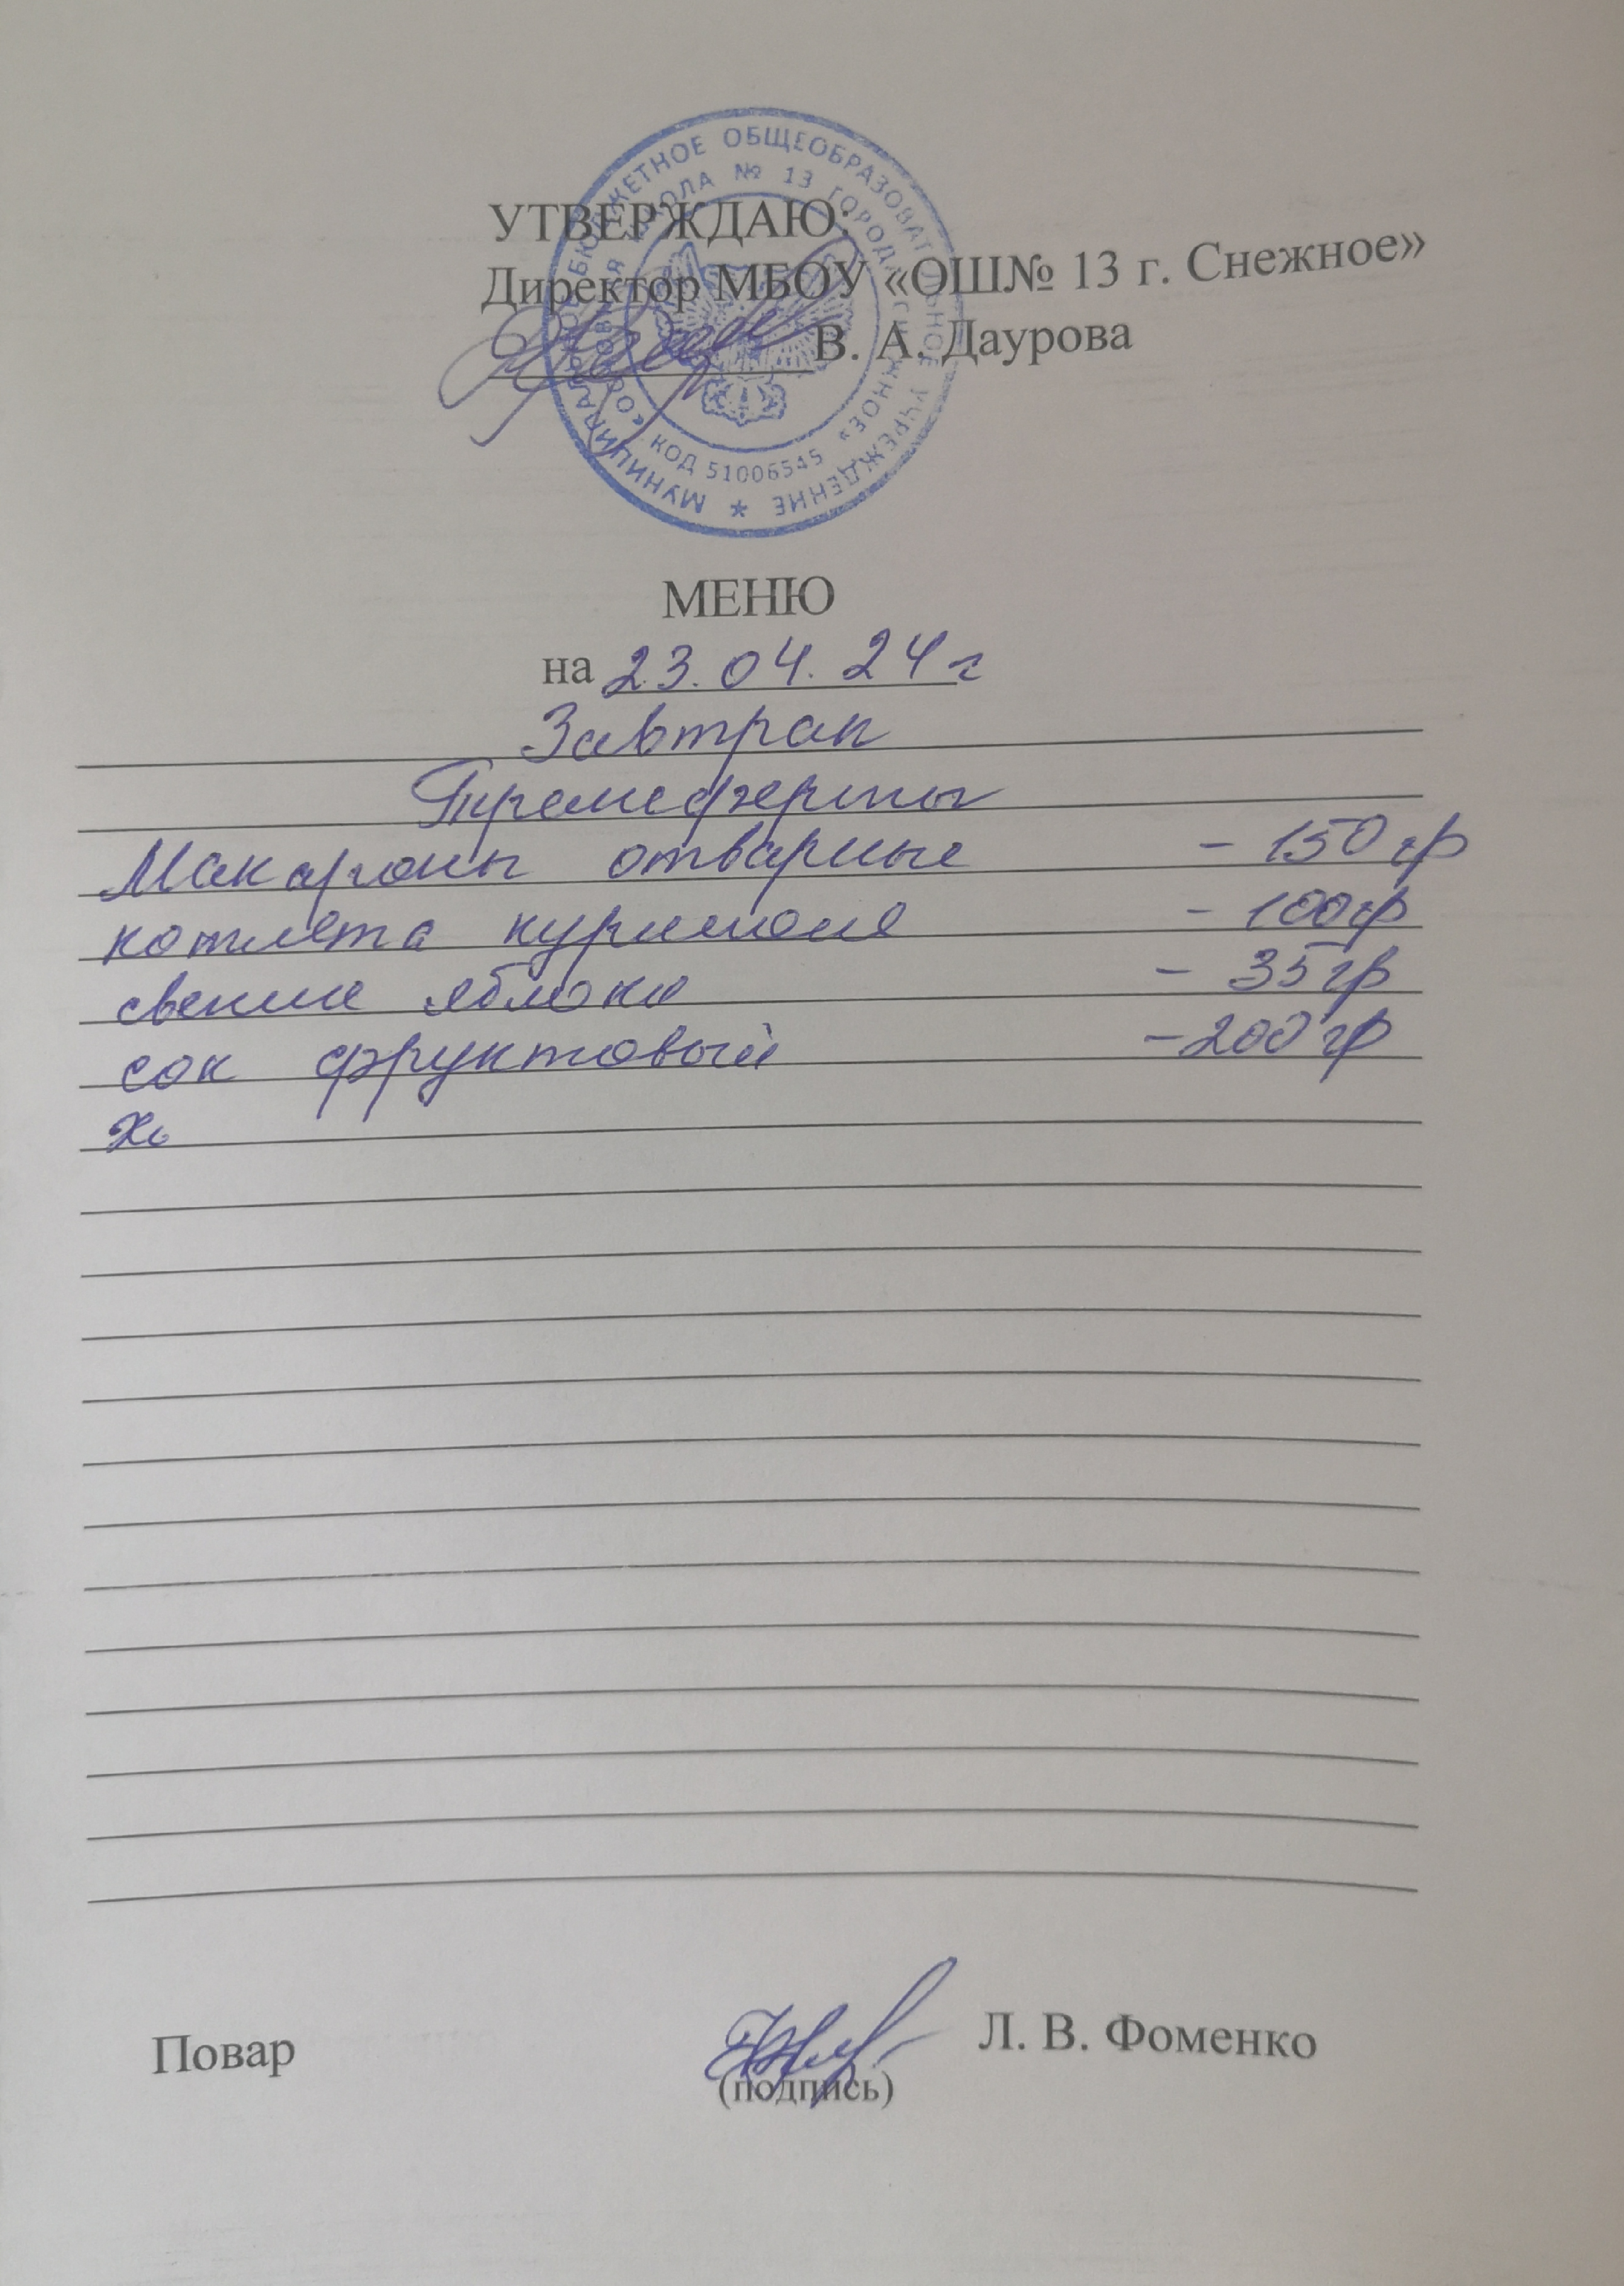 МУНИЦИПАЛЬНОЕ БЮДЖЕТНОЕ ОБЩЕОБРАЗОВАТЕЛЬНОЕ УЧРЕЖДЕНИЕ *
«ОСНОВНАЯ ШКОЛА № 13 ГОРОДА СНЕЖНОЕ»
КОД 51006545
УТВЕРЖДАЮ:
Директор МБОУ «ОШ№ 13 г. Снежное»
В. А. Даурова
МЕНЮ
на 23.04.24г
Завтрак
Макароны отварные - 150 гр
котлета куриная - 100гр
свежие яблоки - 35 гр
сок фруктовый - 200 гр
Хл
Повар Л. В. Фоменко
(подпись)